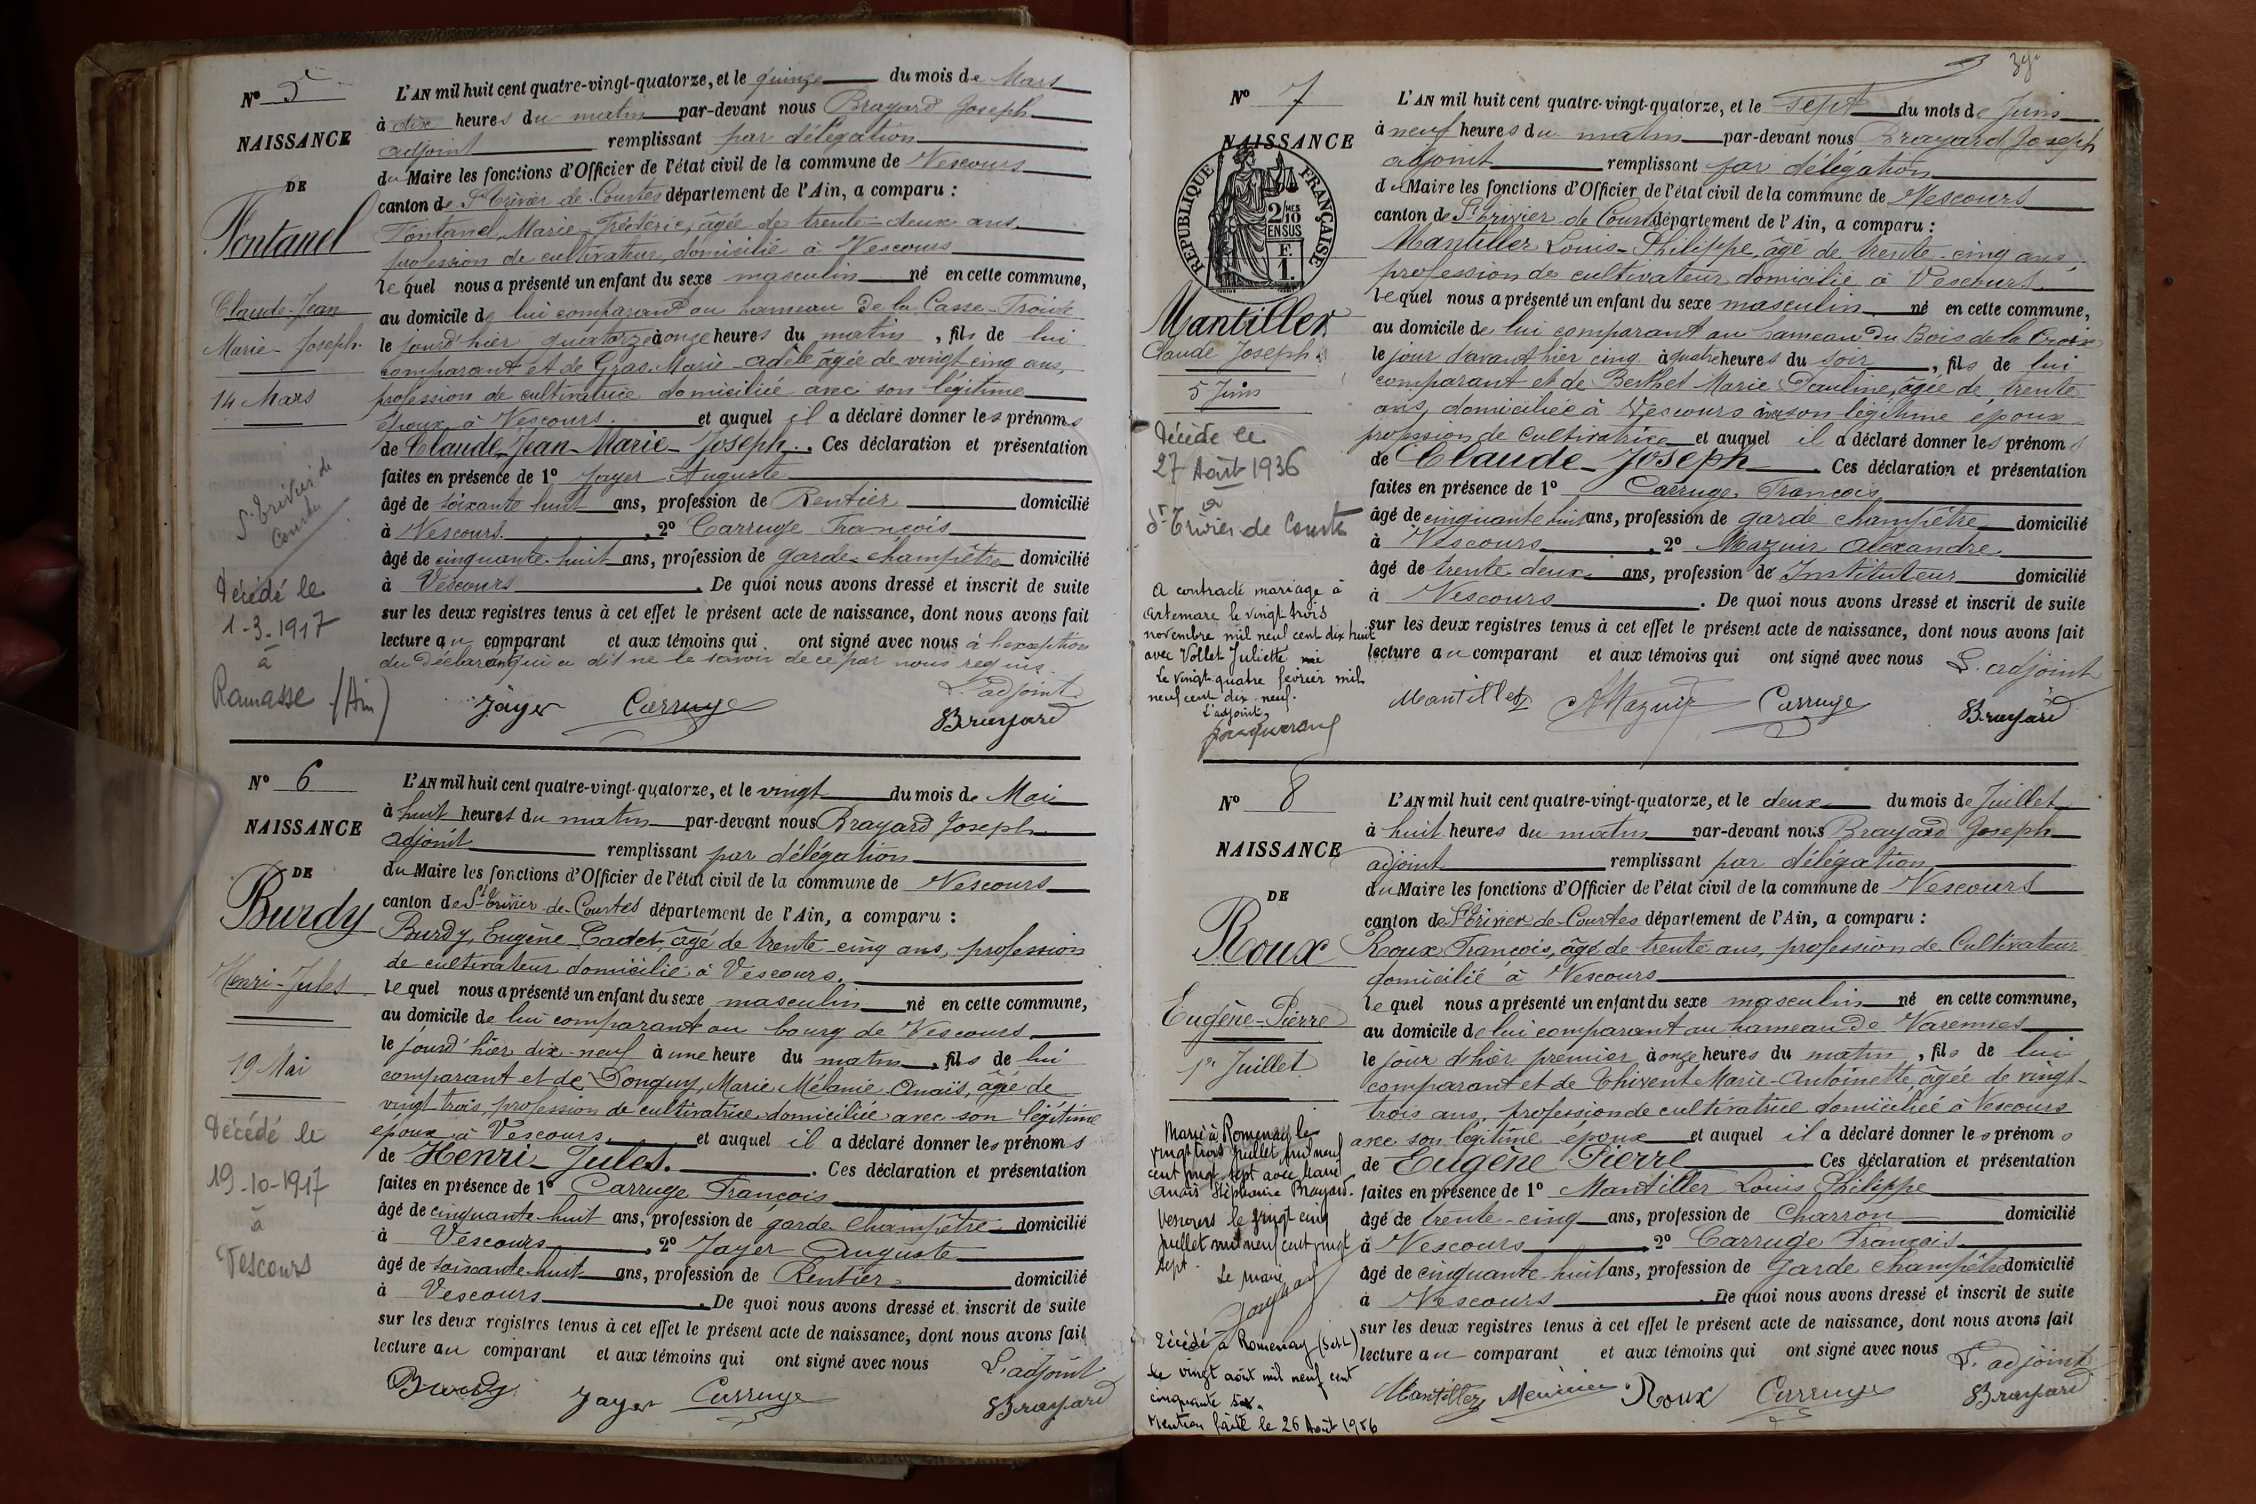 N° 5
NAISSANCE
DE
Fontanel
Claude-Jean
Marie-Joseph
14 Mars
St Trivier de
Courtes
Décédé le
1-3-1917
à
Ramasse (Ain)
L'AN mil huit cent quatre-vingt-quatorze, et le quinze du mois de Mars
à dix heures du matin par-devant nous Brayard Joseph
adjoint remplissant par délégation
du Maire les fonctions d'Officier de l'état civil de la commune de Vescours
canton de St Trivier de Courtes département de l'Ain, a comparu :
Fontanel, Marie-Frédéric, âgée de trente-deux ans,
profession de cultivateur, domicilié à Vescours
lequel nous a présenté un enfant du sexe masculin né en cette commune,
au domicile de lui comparant au hameau de la Casse-Froide
le jourd'hier quatorze à onze heures du matin, fils de lui
comparant et de Gras Marie-Adèle âgée de vingt cinq ans,
profession de cultivatrice domiciliée avec son légitime
époux à Vescours. et auquel il a déclaré donner les prénoms
de Claude-Jean-Marie-Joseph. Ces déclaration et présentation
faites en présence de 1° Jayer Auguste
âgé de soixante huit ans, profession de Rentier domicilié
à Vescours. , 2° Carruge François
âgé de cinquante-huit ans, profession de garde-champêtre domicilié
à Vescours . De quoi nous avons dressé et inscrit de suite
sur les deux registres tenus à cet effet le présent acte de naissance, dont nous avons fait
lecture au comparant et aux témoins qui ont signé avec nous à l'exception
du déclarant qui a dit ne le savoir de ce par nous requis.
L'adjoint
Jayer Carruge Brayard
N° 6
NAISSANCE
DE
Burdy
Henri-Jules
19 Mai
Décédé le
19-10-1917
à
Vescours
L'AN mil huit cent quatre-vingt-quatorze, et le vingt du mois de Mai
à huit heures du matin par-devant nous Brayard Joseph
adjoint remplissant par délégation
du Maire les fonctions d'Officier de l'état civil de la commune de Vescours
canton de St-Trivier-de-Courtes département de l'Ain, a comparu :
Burdy, Eugène Cadet, âgé de trente-cinq ans, profession
de cultivateur domicilié à Vescours.
lequel nous a présenté un enfant du sexe masculin né en cette commune,
au domicile de lui comparant au bourg de Vescours
le jourd'hier dix-neuf à une heure du matin, fils de lui
comparant et de Donguy, Marie Mélanie-Anaïs, âgé de
vingt trois, profession de cultivatrice domiciliée avec son légitime
époux à Vescours. et auquel il a déclaré donner les prénoms
de Henri-Jules. . Ces déclaration et présentation
faites en présence de 1° Carruge François
âgé de cinquante-huit ans, profession de garde Champêtre domicilié
à Vescours , 2° Jayer Auguste
âgé de soixante huit ans, profession de Rentier domicilié
à Vescours . De quoi nous avons dressé et inscrit de suite
sur les deux registres tenus à cet effet le présent acte de naissance, dont nous avons fait
lecture au comparant et aux témoins qui ont signé avec nous L'adjoint
Burdy Jayer Carruge Brayard
39
N° 7
NAISSANCE
RÉPUBLIQUE FRANÇAISE
2/10 MES
EN SUS
F.
1.
Mantiller
Claude Joseph
5 Juin
Décédé le
27 Août 1936
à
St Trivier de Courtes
A contracté mariage à
Artemare le vingt trois
novembre mil neuf cent dix huit
avec Vollet Juliette
Le vingt quatre février mil
neuf cent dix-neuf.
L'adjoint,
L'AN mil huit cent quatre-vingt-quatorze, et le sept du mois de Juin
à neuf heures du matin par-devant nous Brayard Joseph
adjoint remplissant par délégation
du Maire les fonctions d'Officier de l'état civil de la commune de Vescours
canton de St Trivier de Courtes département de l'Ain, a comparu :
Mantiller Louis-Philippe, âgé de trente-cinq ans,
profession de cultivateur domicilié à Vescours.
lequel nous a présenté un enfant du sexe masculin né en cette commune,
au domicile de lui comparant au hameau du Bois de la Croix
le jour d'avant hier cinq à quatre heures du soir, fils de lui
comparant et de Berthet Marie Pauline, âgée de trente
ans, domiciliée à Vescours avec son légitime époux
profession de cultivatrice et auquel il a déclaré donner les prénoms
de Claude-Joseph . Ces déclaration et présentation
faites en présence de 1° Carruge François
âgé de cinquante huit ans, profession de garde champêtre domicilié
à Vescours , 2° Mazuir Alexandre
âgé de trente deux ans, profession de Instituteur domicilié
à Vescours . De quoi nous avons dressé et inscrit de suite
sur les deux registres tenus à cet effet le présent acte de naissance, dont nous avons fait
lecture au comparant et aux témoins qui ont signé avec nous L'adjoint
Mantiller AMazuir Carruge Brayard
N° 8
NAISSANCE
DE
Roux
Eugène-Pierre
1er Juillet
Marié à Romenay le
vingt trois Juillet mil neuf
cent vingt sept avec Marie
Anaïs Stéphanie Brayard.
Vescours le vingt cinq
Juillet mil neuf cent vingt
sept.
Le Maire
Décédé à Romenay (S et L)
le vingt août mil neuf cent
cinquante six.
Mention faite le 26 Août 1956
L'AN mil huit cent quatre-vingt-quatorze, et le deux du mois de Juillet
à huit heures du matin par-devant nous Brayard Joseph
adjoint remplissant par délégation
du Maire les fonctions d'Officier de l'état civil de la commune de Vescours
canton de St Trivier-de-Courtes département de l'Ain, a comparu :
Roux François, âgé de trente ans, profession de Cultivateur
domicilié à Vescours
lequel nous a présenté un enfant du sexe masculin né en cette commune,
au domicile de lui comparant au hameau de Varennes
le jour d'hier premier, à onze heures du matin, fils de lui
comparant et de Thivent Marie-Antoinette, âgée de vingt-
trois ans, profession de cultivatrice domiciliée à Vescours
avec son légitime époux et auquel il a déclaré donner les prénoms
de Eugène Pierre Ces déclaration et présentation
faites en présence de 1° Mantiller Louis Philippe
âgé de trente-cinq ans, profession de Charron domicilié
à Vescours , 2° Carruge François
âgé de cinquante-huit ans, profession de Garde Champêtre domicilié
à Vescours . De quoi nous avons dressé et inscrit de suite
sur les deux registres tenus à cet effet le présent acte de naissance, dont nous avons fait
lecture au comparant et aux témoins qui ont signé avec nous L'adjoint
Mantiller Roux Carruge Brayard